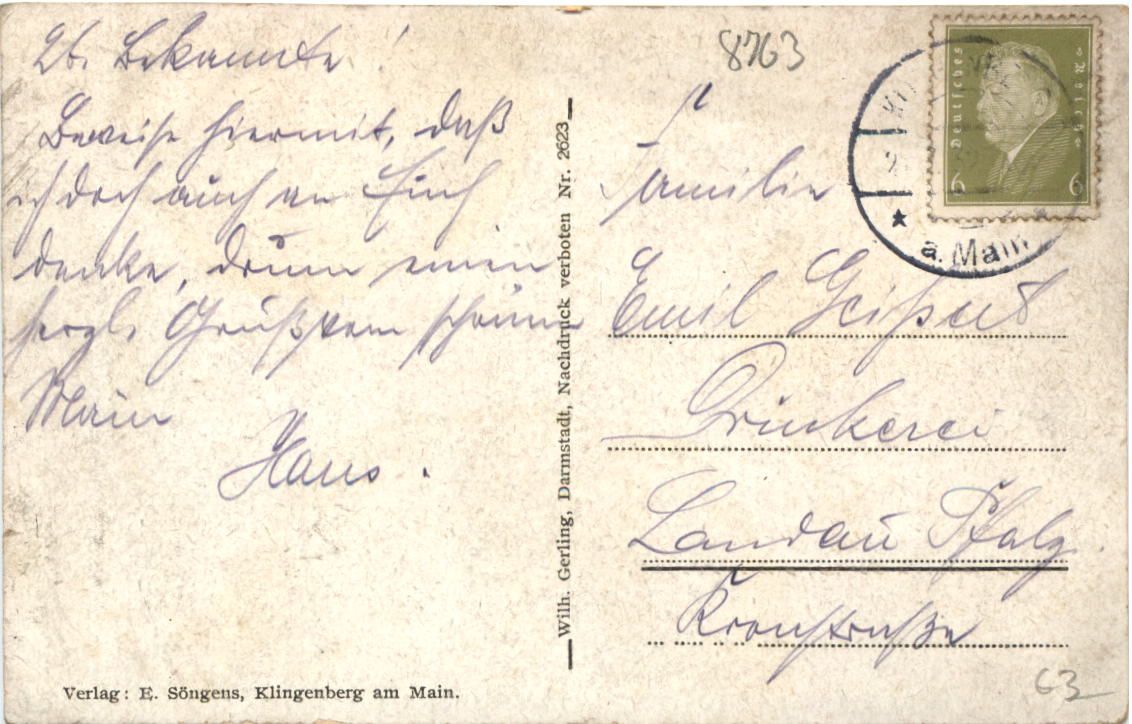 Lb. Bekannte!
Beweise hiermit, daß
ich doch auch an Euch
denke, drum einen
herzl. Gruß vom schönen
Main
Hans.
Verlag: E. Söngens, Klingenberg am Main.
Wilh. Gerling, Darmstadt, Nachdruck verboten Nr. 2623
8763
Deutsches Reich
6 6
a. Main
Familie
Emil
Druckerei
Landau Pfalz.
Kronstraße
63